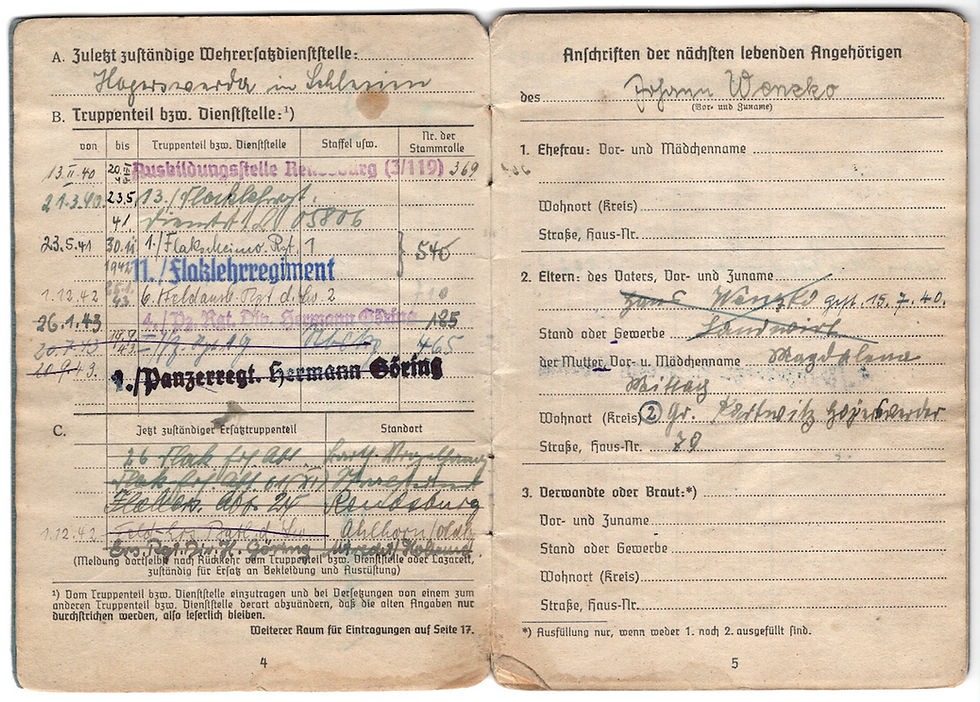 A. Zuletzt zuständige Wehrersatzdienststelle:
Hoyerswerda in Schlesien
B. Truppenteil bzw. Dienststelle:¹)
von bis Truppenteil bzw. Dienststelle Staffel usw. Nr. der Stammrolle
13.II.40 Ausbildungsstelle Rendsburg (3/119) 369
21.3.40. 23.5. 13./Flaklehrrgt.
41. 05806
23.5.41 30.11 1./ Rgt. 1 540
1942 11./Flaklehrregiment
1.12.42 6. Rgt. d. Lw. 2
26.1.43 4./Pz. Rgt. Div. Hermann Göring 185
20.7.43 465
20.9.43. 1./Panzerregt. Hermann Göring
C. Jetzt zuständiger Ersatztruppenteil Standort
26 Flak Ers. Abt.
Flak Ers. Abt.
Abt. 25 Rendsburg
1.12.42. Feld-Ers. Batl. d. Lw. Ahlhorn/Oldb.
Ers. Rgt. Div. H. Göring
(Meldung dortselbst nach Rückkehr vom Truppenteil bzw. Dienststelle oder Lazarett,
zuständig für Ersatz an Bekleidung und Ausrüstung)
¹) Vom Truppenteil bzw. Dienststelle einzutragen und bei Versetzungen von einem zum
anderen Truppenteil bzw. Dienststelle derart abzuändern, daß die alten Angaben nur
durchstrichen werden, also leserlich bleiben.
Weiterer Raum für Eintragungen auf Seite 17.
4
Anschriften der nächsten lebenden Angehörigen
des Johann Wenzko
(Vor- und Zuname)
1. Ehefrau: Vor- und Mädchenname
Wohnort (Kreis)
Straße, Haus-Nr.
2. Eltern: des Vaters, Vor- und Zuname
Wenzko gest. 15.7.40.
Stand oder Gewerbe Landwirt
der Mutter, Vor- u. Mädchenname Magdalena
Mittag
Wohnort (Kreis) 2 Gr. Partwitz Hoyerswerda
Straße, Haus-Nr. 79
3. Verwandte oder Braut:*)
Vor- und Zuname
Stand oder Gewerbe
Wohnort (Kreis)
Straße, Haus-Nr.
*) Ausfüllung nur, wenn weder 1. noch 2. ausgefüllt sind.
5